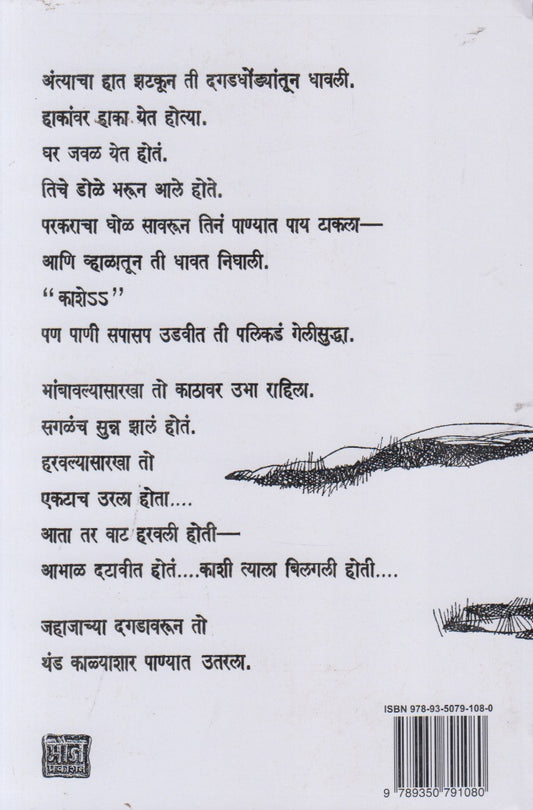 अंत्याचा हात झटकून ती दगडधोंड्यांतून धावली.
हाकांवर हाका येत होत्या.
घर जवळ येत होतं.
तिचे डोळे भरून आले होते.
परकराचा घोळ सावरून तिनं पाण्यात पाय टाकला—
आणि व्हाळातून ती धावत निघाली.
“काशेऽऽ”
पण पाणी सपासप उडवीत ती पलिकडं गेलीसुद्धा.
भांबावल्यासारखा तो काठावर उभा राहिला.
सगळंच सुन्न झालं होतं.
हरवल्यासारखा तो
एकटाच उरला होता....
आता तर वाट हरवली होती—
आभाळ दटावीत होतं....काशी त्याला बिलगली होती....
जहाजाच्या दगडावरून तो
थंड काळ्याशार पाण्यात उतरला.
ISBN 978-93-5079-108-0
मौज
प्रकाशन
9 789350 791080